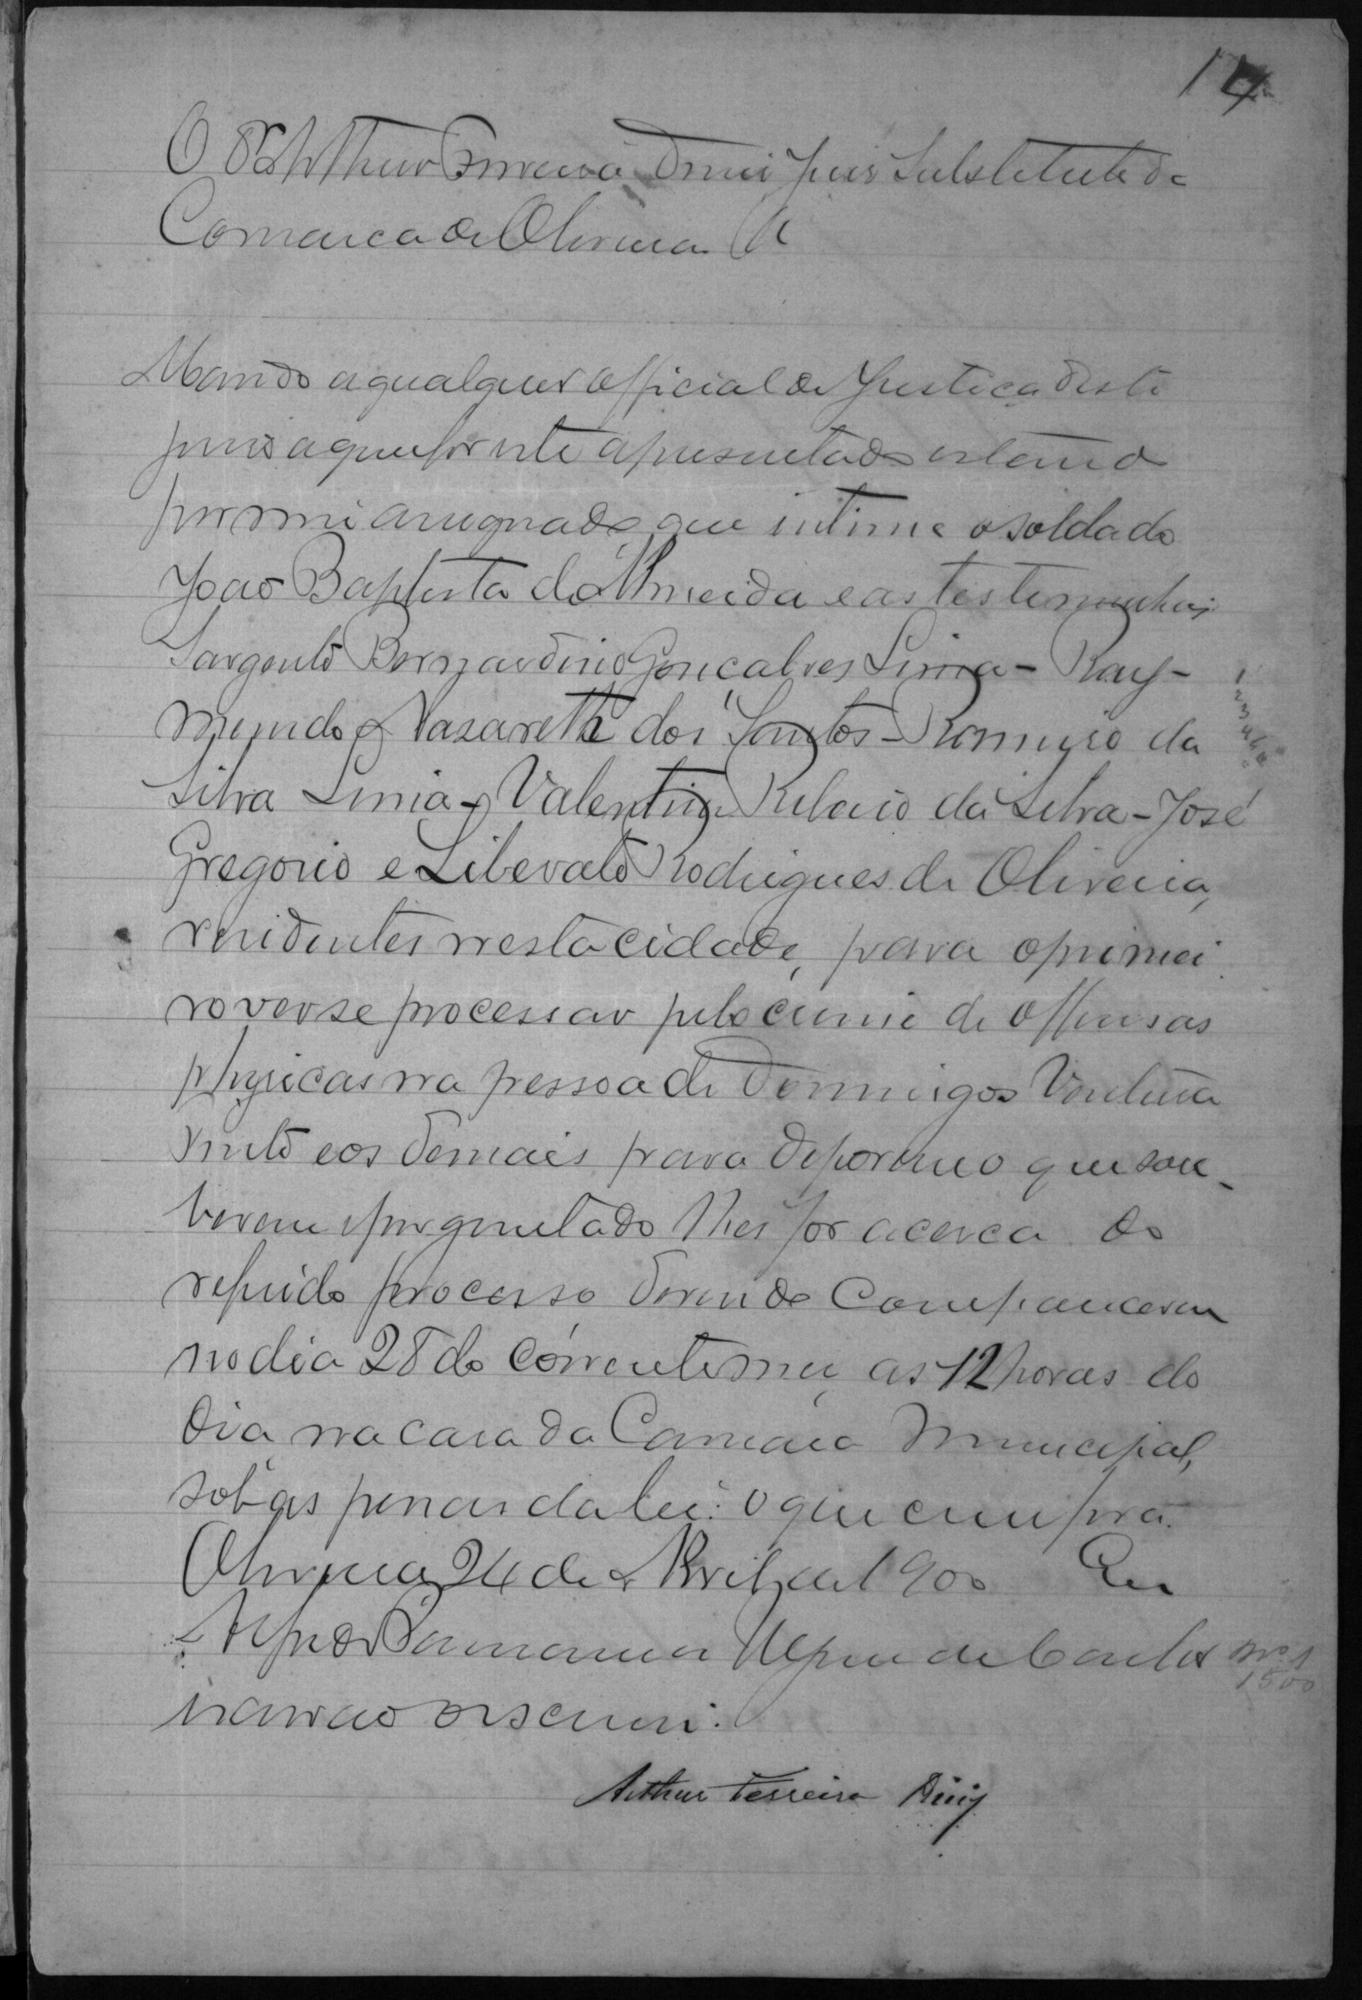 14
O Dr Arthur Ferreira Diniz Juis Substituto da
Comarca de Oliveira
Mando a qualquer official de Justiça deste
juiso a quem for este apresentado estando
por mim assignado que intime o soldado
João Baptista de Almeida e as testemunhas
Sargento Bernardino Gonçalves Lima - Ray-
mundo Nazareth dos Santos - Romujo da
Silva Lima - Valentim da Silva - José
Gregorio e Liberato Rodrigues de Oliveira,
residentes nesta cidade, para o primei
ro ver se processar pelo crime de offensas
physicas na pessoa de Domingos Ventura
e os demais para deporem o que sou-
berem e perguntado lhes for acerca do
referido processo devendo comparecerem
no dia 28 do corrente mez as 12 horas do
dia na casa da Camara Municipal,
sob as penas da lei: o que cumpra.
Oliveira 24 de Abril de 1900 Eu
Alfredo de Castro
escrivão o escrevi.
1500
Arthur Ferreira Diniz